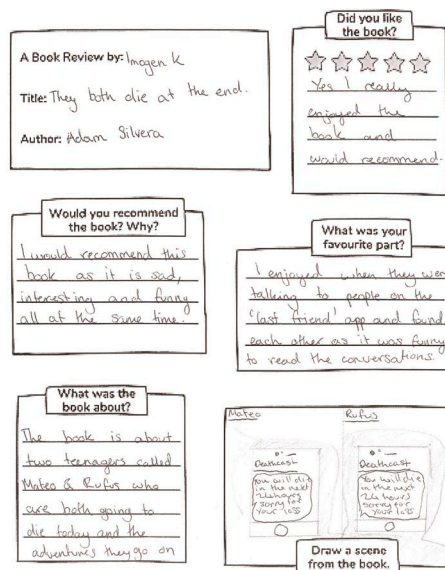 A Book Review by: Imogen K
Title: They both die at the end.
Author: Adam Silvera
Did you like
the book?
Yes I really
enjoyed the
book and
would recommend.
Would you recommend
the book? Why?
I would recommend this
book as it is sad,
interesting and funny
all at the same time.
What was your
favourite part?
I enjoyed when they were
talking to people on the
'last friend' app and found
each other as it was funny
to read the conversations.
What was the
book about?
The book is about
two teenagers called
Mateo & Rufus who
are both going to
die today and the
adventures they go on
Mateo
Deathcast
You will die
in the next
24 hours
sorry for
your loss
Rufus
Deathcast
You will die
in the next
24 hours
sorry for
your loss
Draw a scene
from the book.